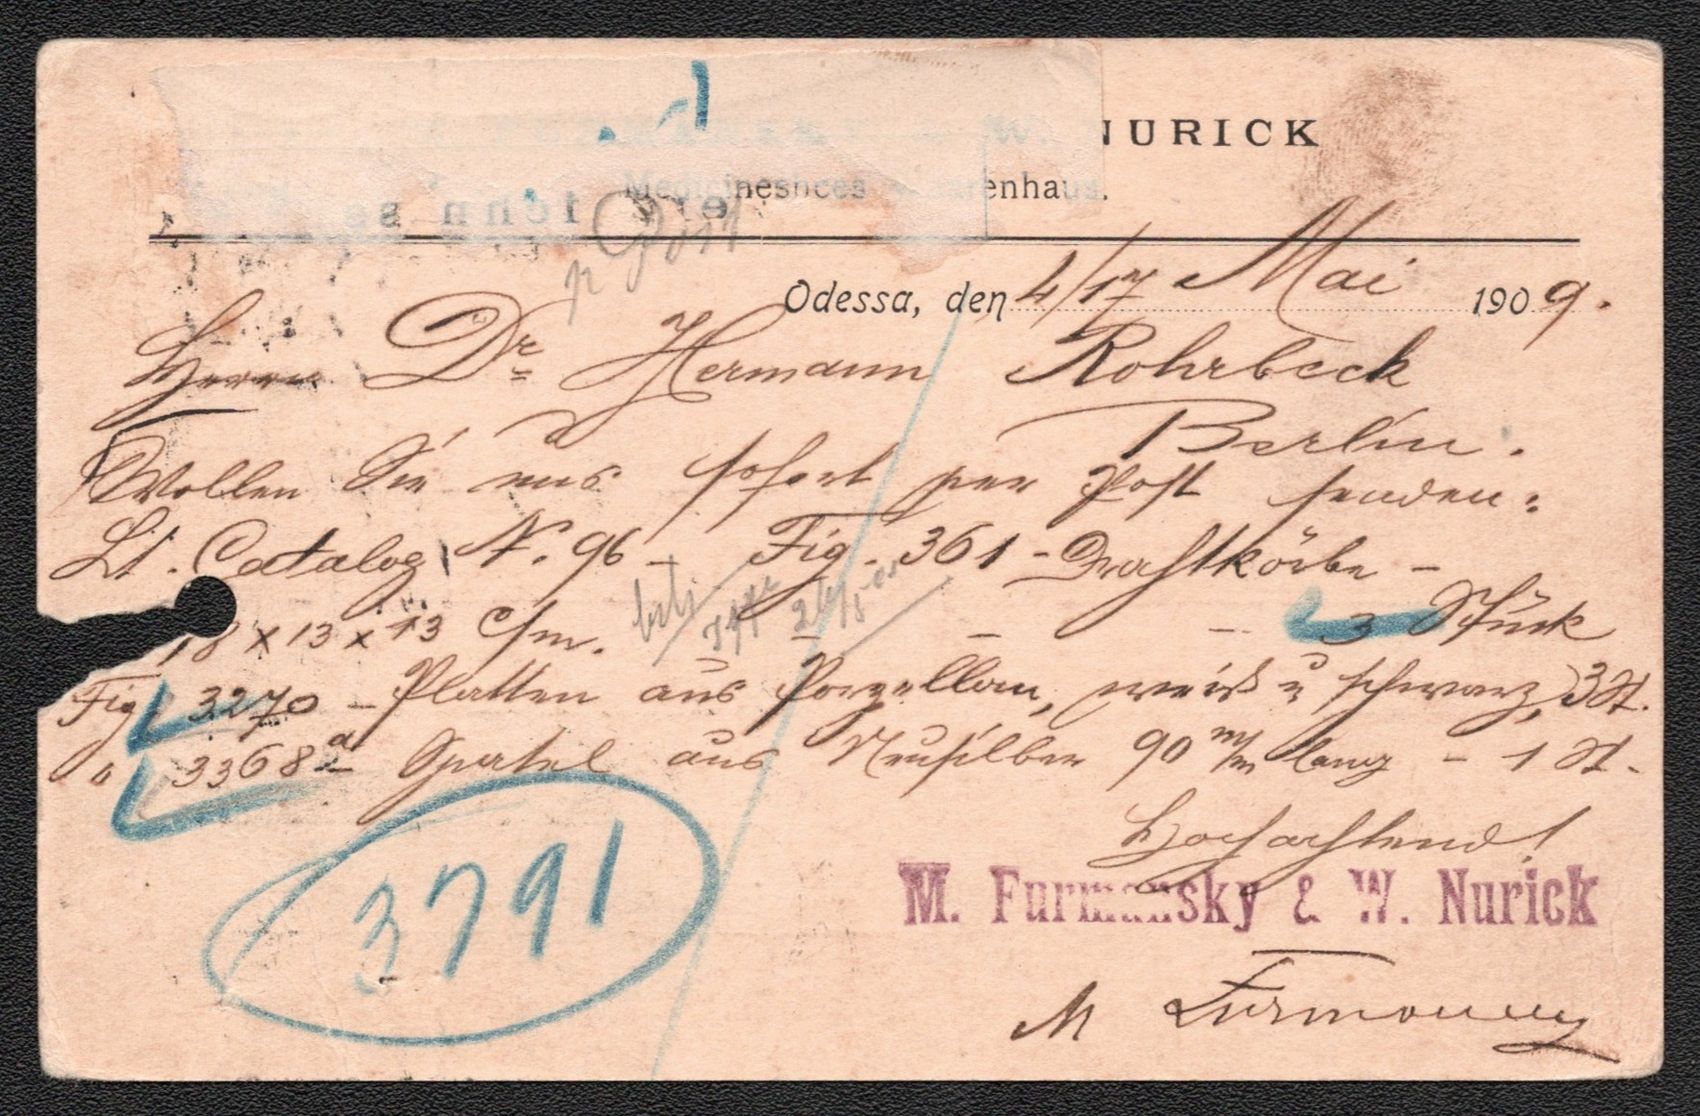 NURICK
Medicineshces Waarenhaus.
p Post
Odessa, den 4/17 Mai 1909.
Herrn Dr Hermann Rohrbeck
Berlin.
Wollen Sie uns sofort per Post senden:
Lt. Catalog N. 96 - Fig. 361 - Drahtkörbe -
18 x 13 x 13 c/m. - - - 3 Stück
Fig 3270 - Platten aus Porzellan, weiß u schwarz, 3 St.
" 3368a - Spatel aus Neusilber 90 m/m lang - 1 St.
Hochachtend
3791
M. Furmansky & W. Nurick
M Furmansky